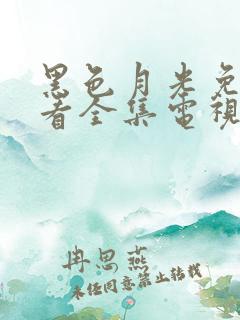 黑色月光免
看全集電視
冉思燕
未经同意禁止转载